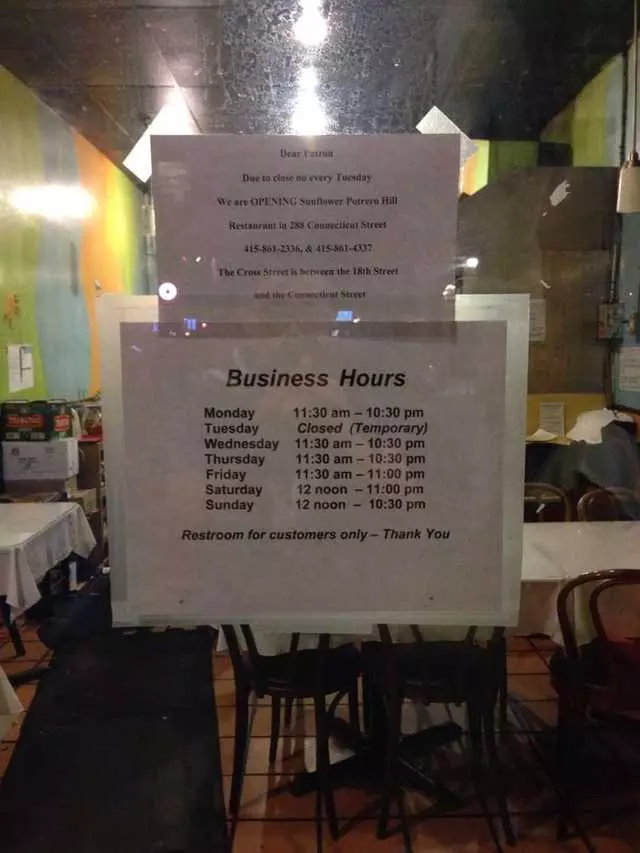 Dear Patron
Due to close on every Tuesday
We are OPENING Sunflower Potrero Hill
Restaurant in 288 Connecticut Street
415-861-2336, & 415-861-4337
The Cross Street is between the 18th Street
and the Connecticut Street
Business Hours
Monday 11:30 am – 10:30 pm
Tuesday Closed (Temporary)
Wednesday 11:30 am – 10:30 pm
Thursday 11:30 am – 10:30 pm
Friday 11:30 am – 11:00 pm
Saturday 12 noon – 11:00 pm
Sunday 12 noon – 10:30 pm
Restroom for customers only – Thank You